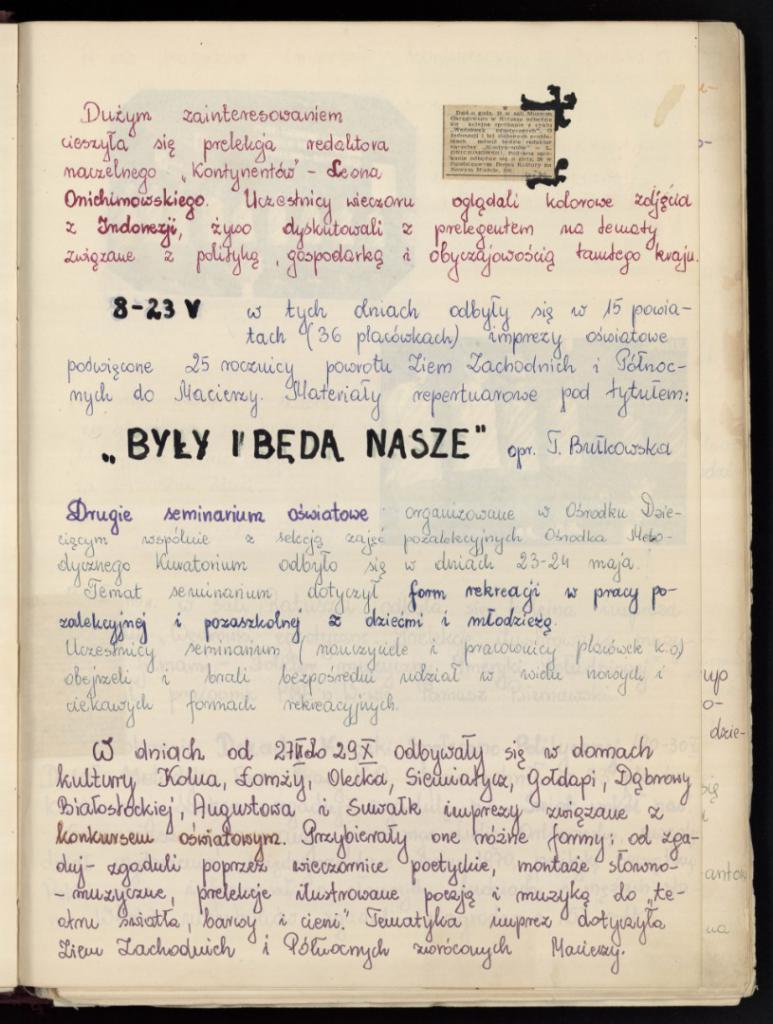 Dużym zainteresowaniem
cieszyła się prelekcja redaktora
naczelnego „Kontynentów" - Leona
Onichimowskiego. Uczestnicy wieczoru oglądali kolorowe zdjęcia
z Indonezji, żywo dyskutowali z prelegentem na tematy
związane z polityką, gospodarką i obyczajowością tamtego kraju.
8-23 V w tych dniach odbyły się w 15 powia-
tach (36 placówkach) imprezy oświatowe
poświęcone 25 rocznicy powrotu Ziem Zachodnich i Północ-
nych do Macierzy. Materiały repertuarowe pod tytułem:
„BYŁY I BĘDĄ NASZE" opr. T. Bułkowska
Drugie seminarium oświatowe organizowane w Ośrodku Dzie-
cięcym wspólnie z sekcją zajęć pozalekcyjnych Ośrodka Meto-
dycznego Kuratorium odbyło się w dniach 23-24 maja.
Temat seminarium dotyczył form rekreacji w pracy po-
zalekcyjnej i pozaszkolnej z dziećmi i młodzieżą.
Uczestnicy seminarium (nauczyciele i pracownicy placówek k.o)
obejrzeli i brali bezpośredni udział w wielu nowych i
ciekawych formach rekreacyjnych.
W dniach od 27 do 29 X odbywały się w domach
kultury Kolna, Łomży, Olecka, Siemiatycz, Gołdapi, Dąbrowy
Białostockiej, Augustowa i Suwałk imprezy związane z
konkursem oświatowym. Przybierały one różne formy: od zga-
duj-zgaduli poprzez wieczornice poetyckie, montaże słowno-
-muzyczne, prelekcje ilustrowane poezją i muzyką do „te-
atru światła, barwy i cieni." Tematyka imprez dotyczyła
Ziem Zachodnich i Północnych zwróconych Macierzy.